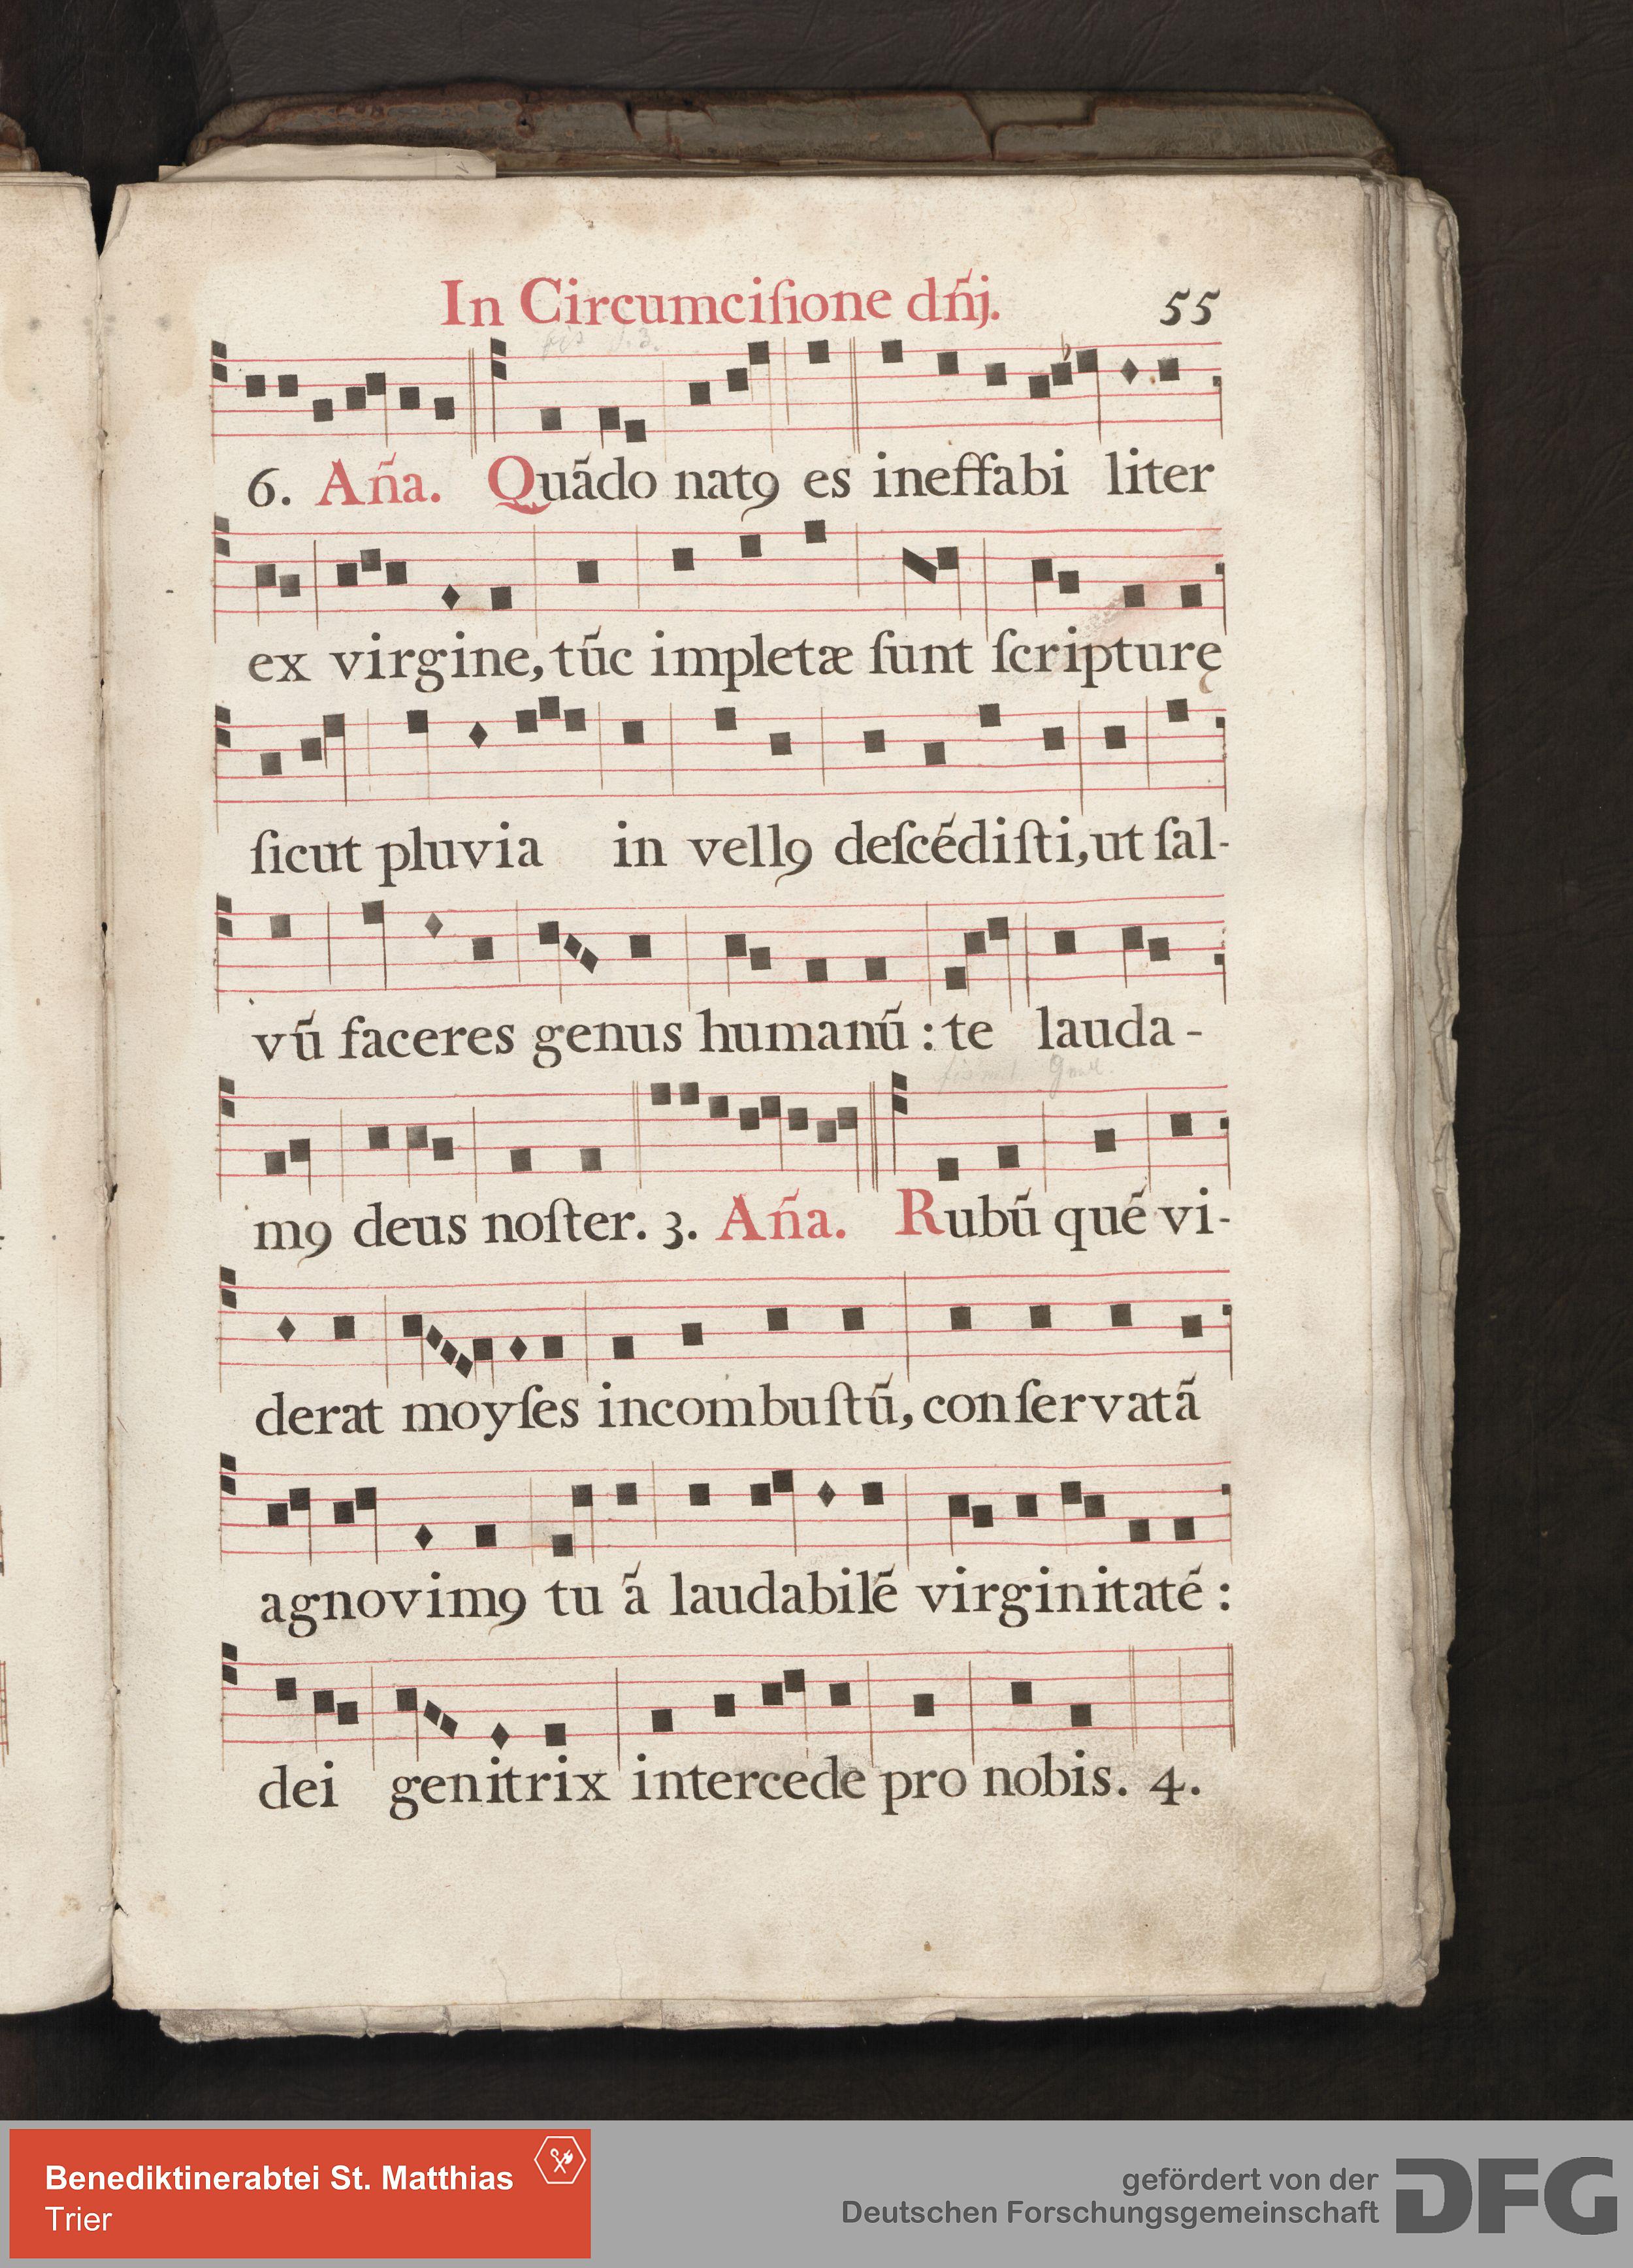 In Circumciſione dn̄j. 55
6. An̄a. Quādo natꝯ es ineffabi liter
ex virgine, tūc impletæ ſunt ſcripturę
ſicut pluvia in vellꝯ deſcēdiſti, ut ſal-
vū faceres genus humanū : te lauda -
mꝯ deus noſter. 3. An̄a. Rubū quē vi-
derat moyſes incombuſtū, conſervatā
agnovimꝯ tu ā laudabilē virginitatē :
dei genitrix intercede pro nobis. 4.
Benediktinerabtei St. Matthias
Trier
gefördert von der
Deutschen Forschungsgemeinschaft
DFG